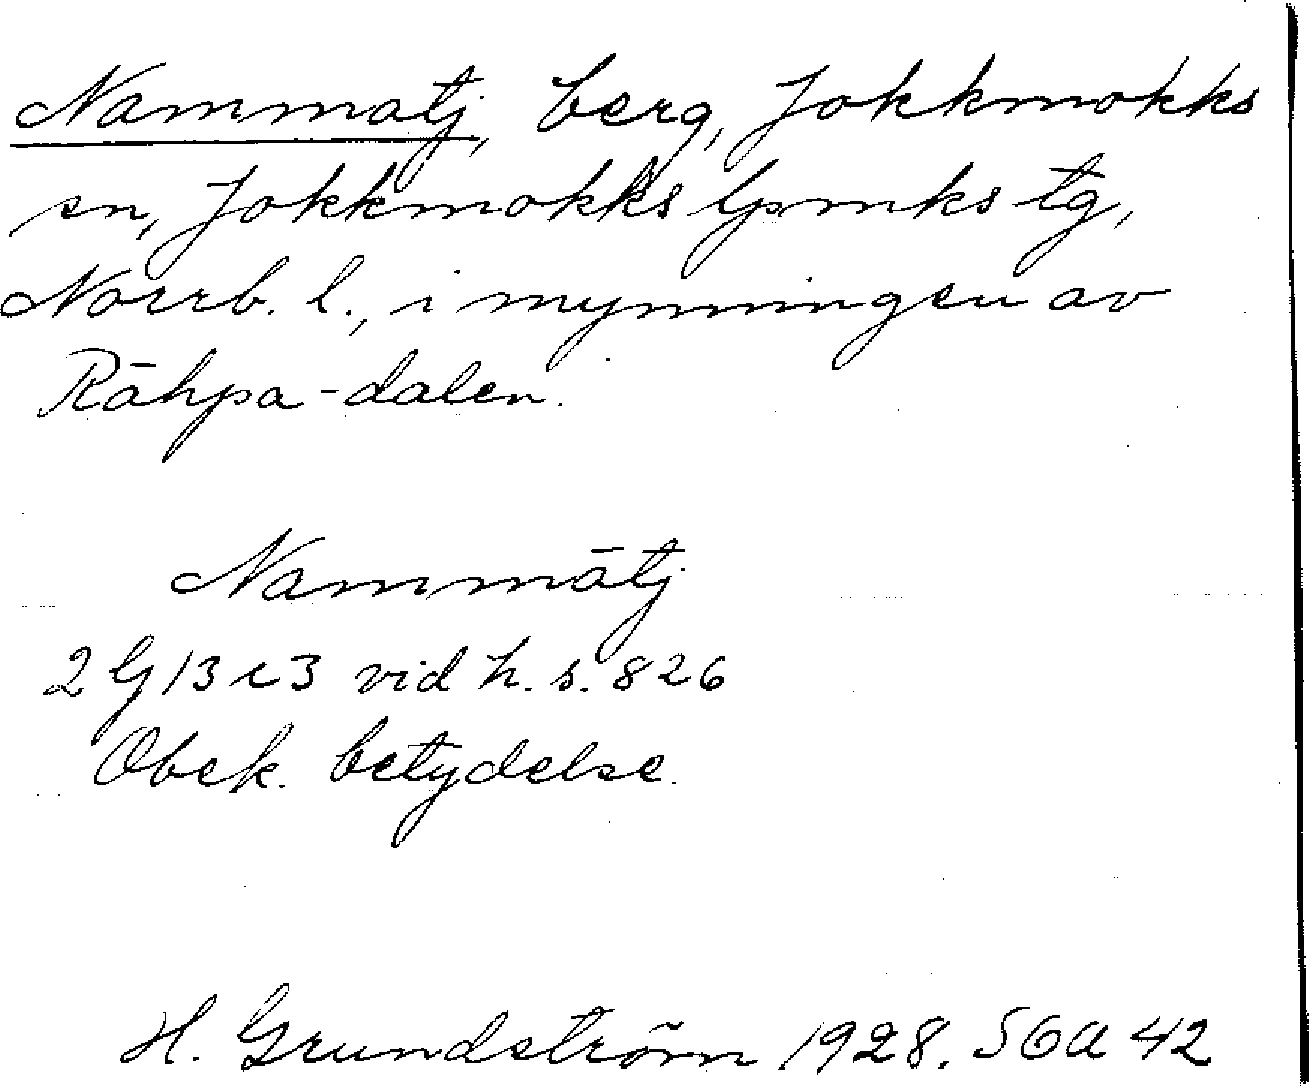 Nammatj, berg, Jokkmokks
sn, Jokkmokks lpmks tg,
Norrb. l., i mynningen av
Rāhpa-dalen.
Nammātj
2 G 13 c 3 vid h. s. 826
Obek. betydelse.
H. Grundström 1928. SGA 42